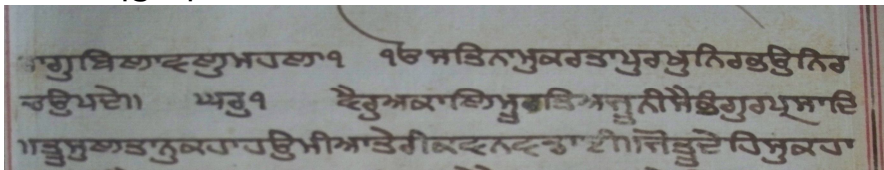 ਰਾਗੁਬਿਲਾਵਲੁਮਹਲਾ੧ ੴਸਤਿਨਾਮੁਕਰਤਾਪੁਰਖੁਨਿਰਭਉਨਿਰ
ਚਉਪਦੇ॥ ਘਰੁ੧ ਵੈਰੁਅਕਾਲਮੂਰਤਿਅਜੂਨੀਸੈਭੰਗੁਰਪ੍ਰਸਾਦਿ
॥ਤੂਸੁਲਤਾਨੁਕਹਾਹਉਮੀਆਤੇਰੀਕਵਨਵਡਾਈ॥ਜੋਤੂਦੇਹਿਸੁਕਹਾ